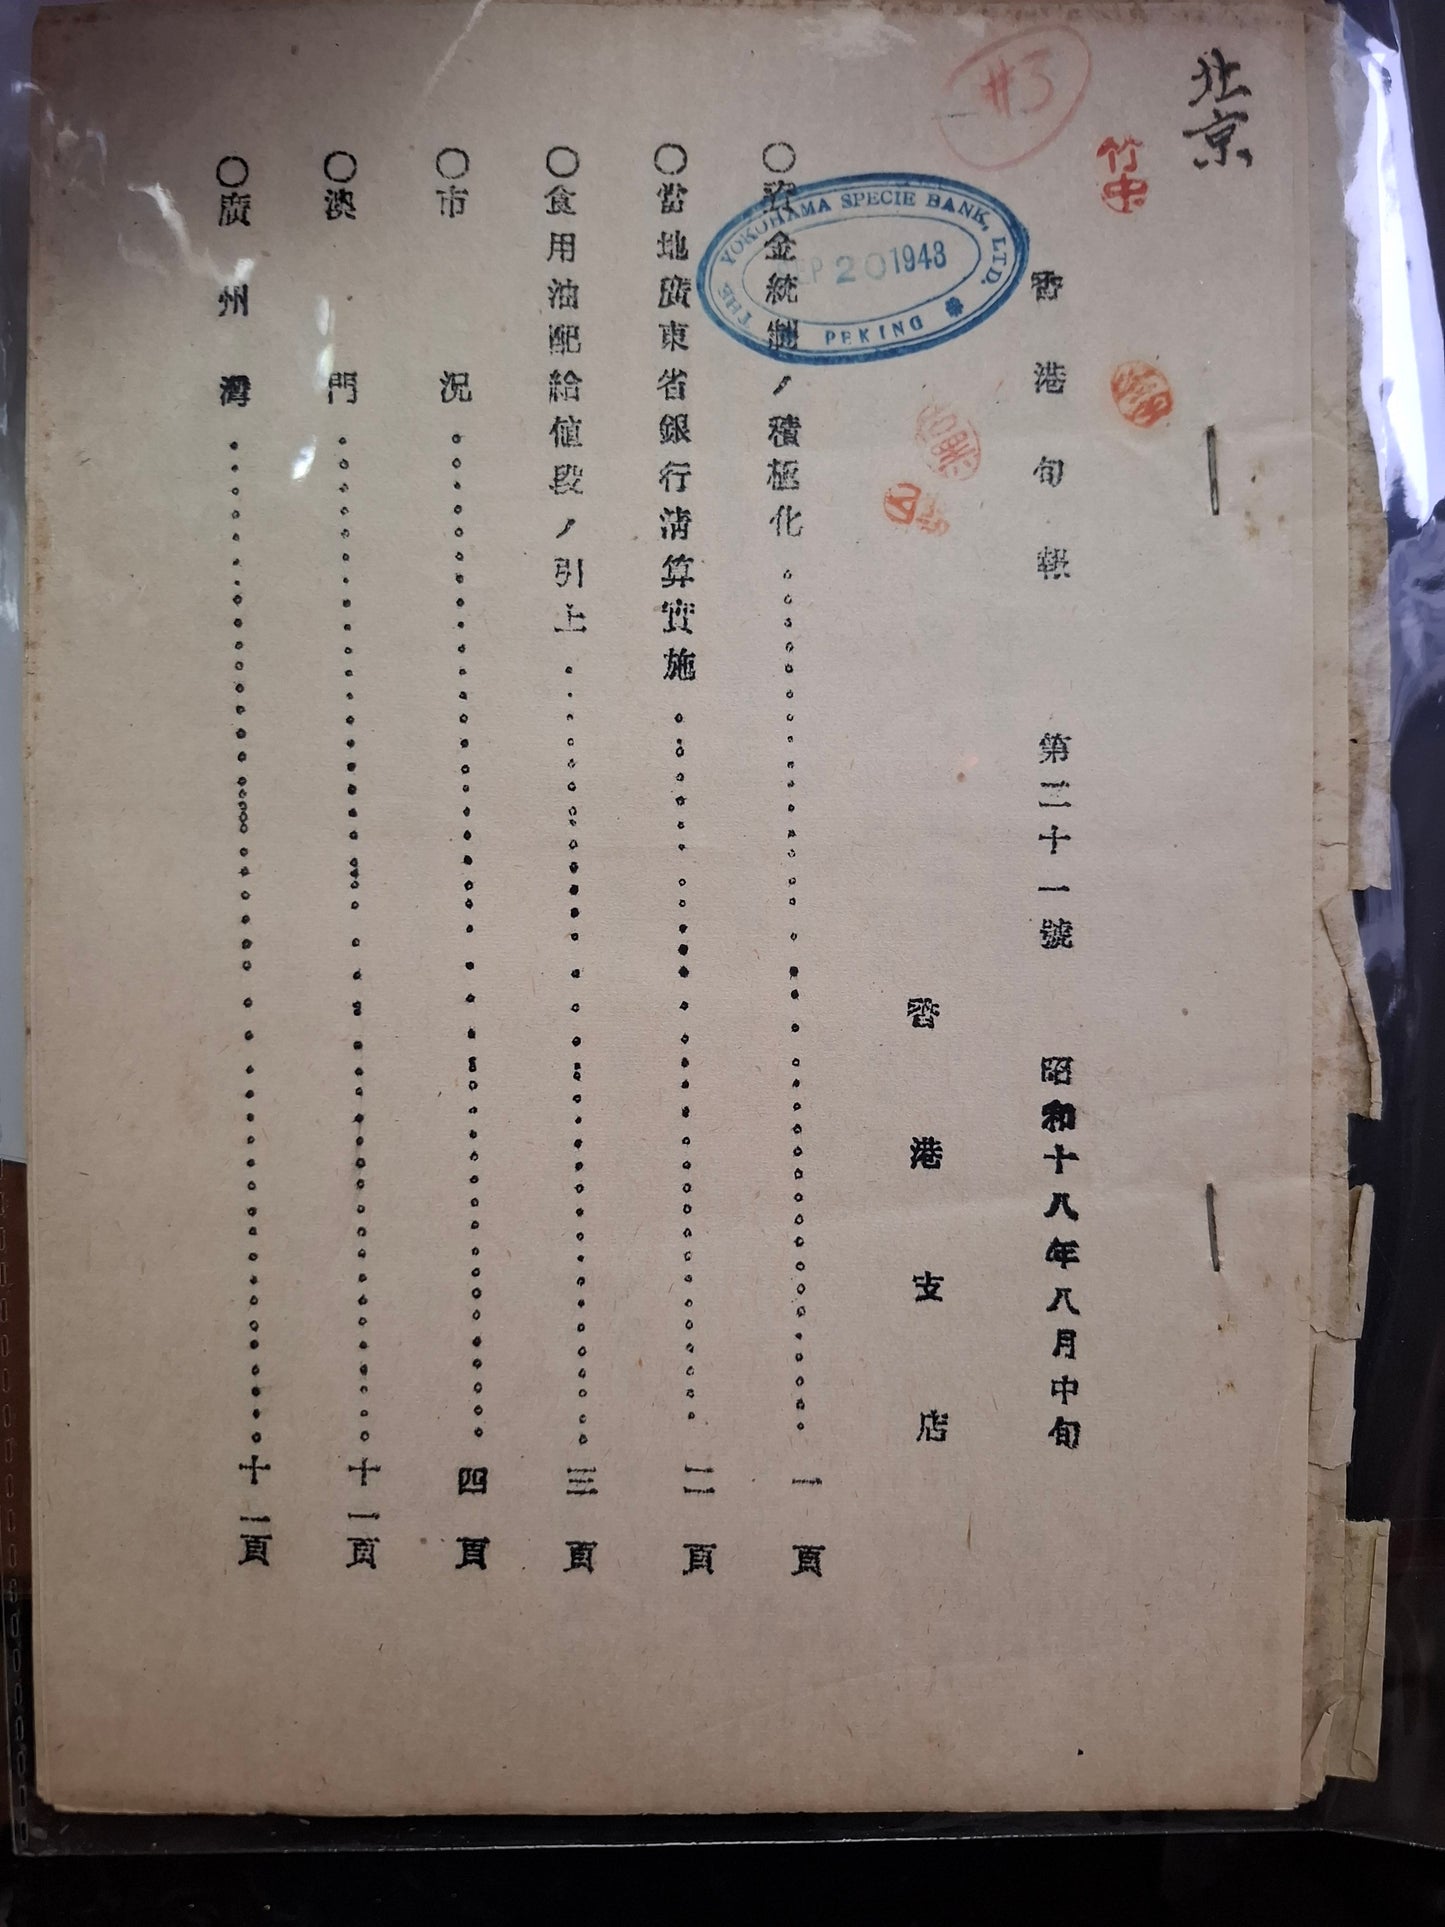 北京
竹中
#3
THE YOKOHAMA SPECIE BANK, LTD.
SEP 20 1943
PEKING
香港旬報 第二十一號 昭和十八年八月中旬
香港支店
○資金統制ノ積極化 一頁
○當地廣東省銀行淸算實施 二頁
○食用油配給値段ノ引上 三頁
○市況 四頁
○澳門 十一頁
○廣州灣 十一頁